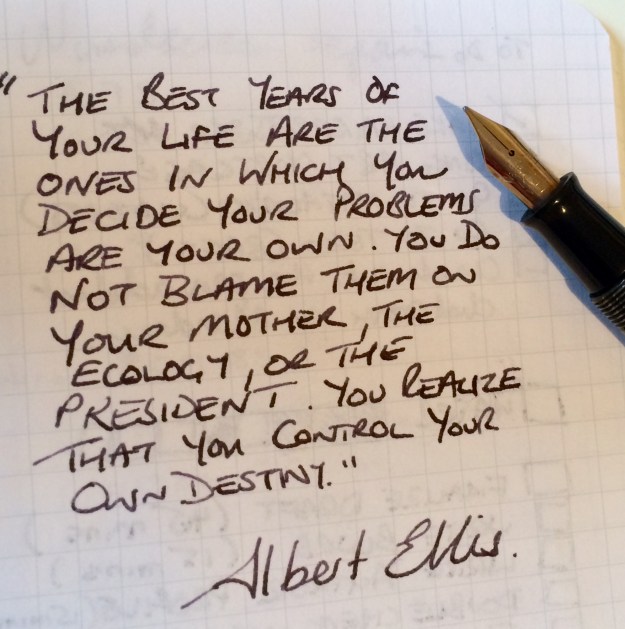 "THE BEST YEARS OF
YOUR LIFE ARE THE
ONES IN WHICH YOU
DECIDE YOUR PROBLEMS
ARE YOUR OWN. YOU DO
NOT BLAME THEM ON
YOUR MOTHER, THE
ECOLOGY, OR THE
PRESIDENT. YOU REALIZE
THAT YOU CONTROL YOUR
OWN DESTINY."
Albert Ellis.